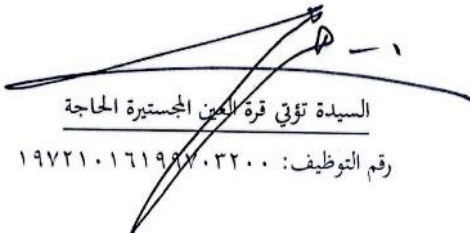 السيدة تؤتي قرة العين المجستيرة الحاجة
رقم التوظيف: ١٩٧٢١٠١٦١٩٩٧٠٣٢٠٠